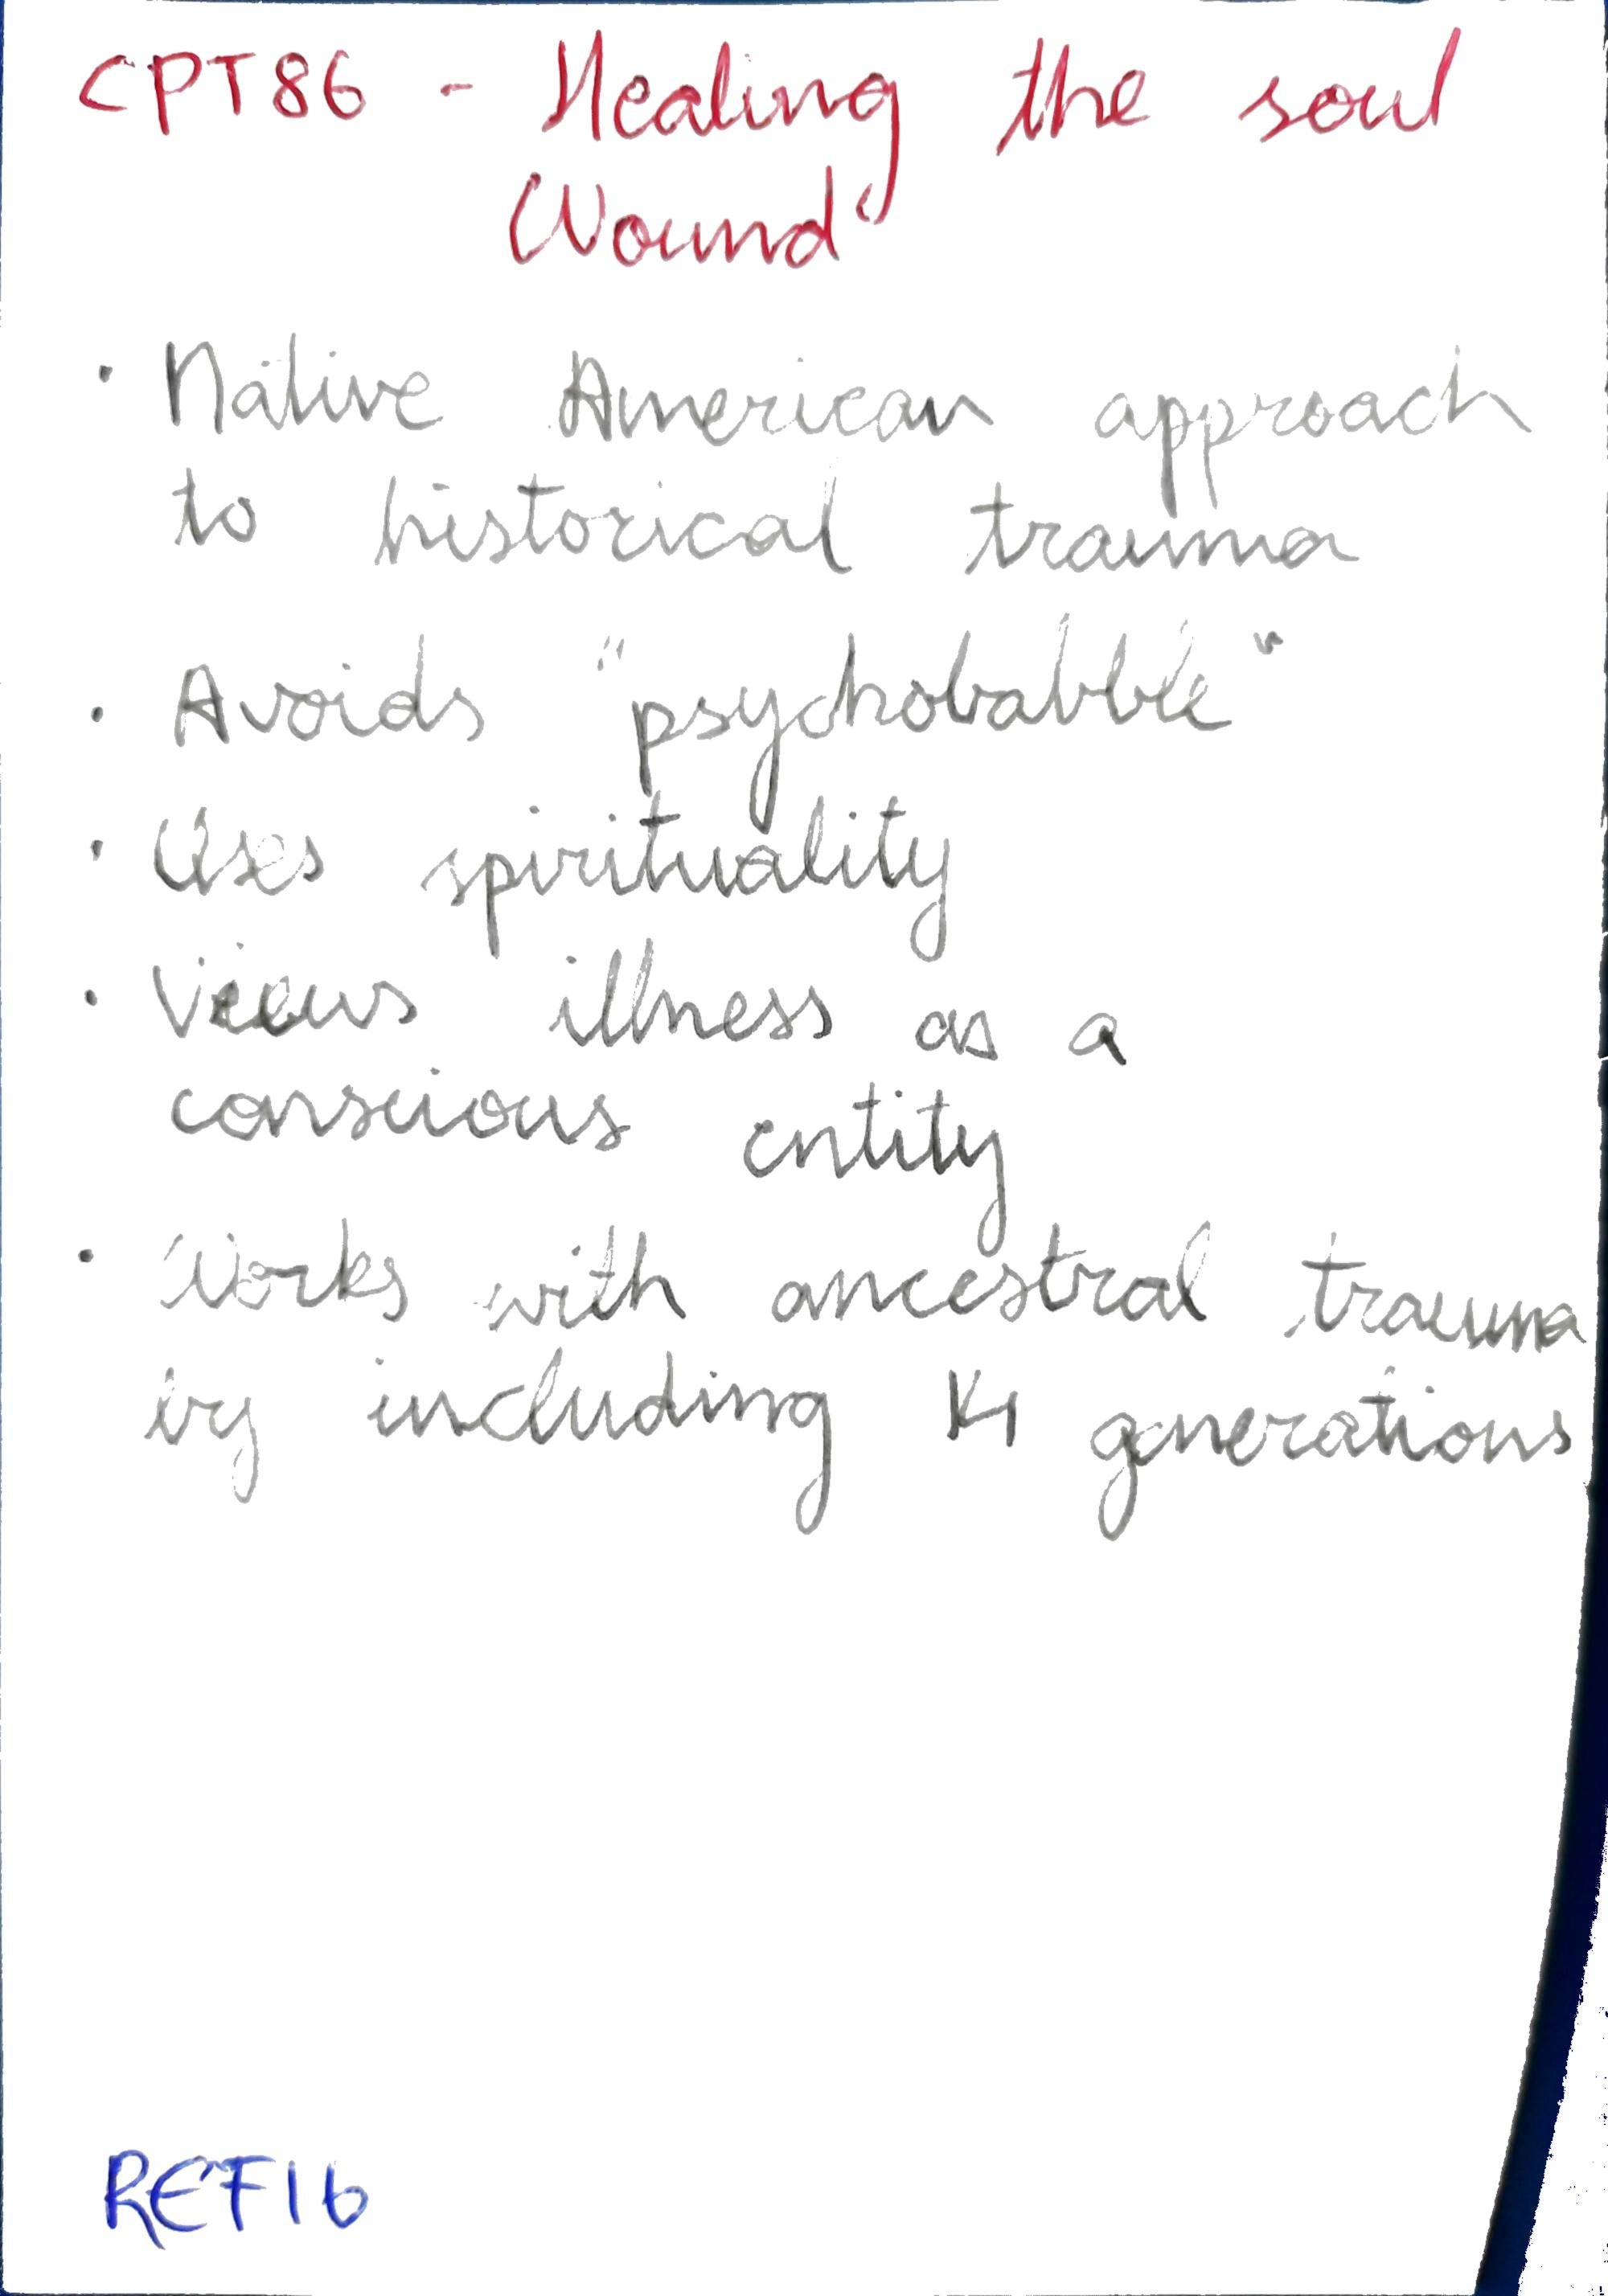 CPT86 - Healing the soul
Wound
· Native American approach
to historical trauma
· Avoids "psychobabble"
· Uses spirituality
· Views illness as a
conscious entity
· Works with ancestral trauma
by including generations
REF16